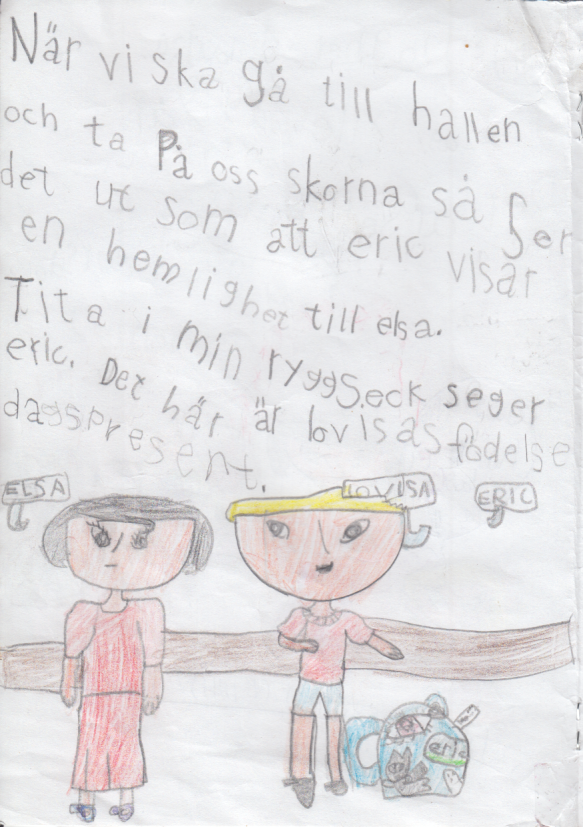 När vi ska gå till hallen
och ta På oss skorna så Ser
det ut som att eric visar
en hemlighet till elsa.
Tita i min ryggS.eck seger
eric. Det här är lovisas födelse
dagspresent.
ELSA
LOVISA
ERIC
eric